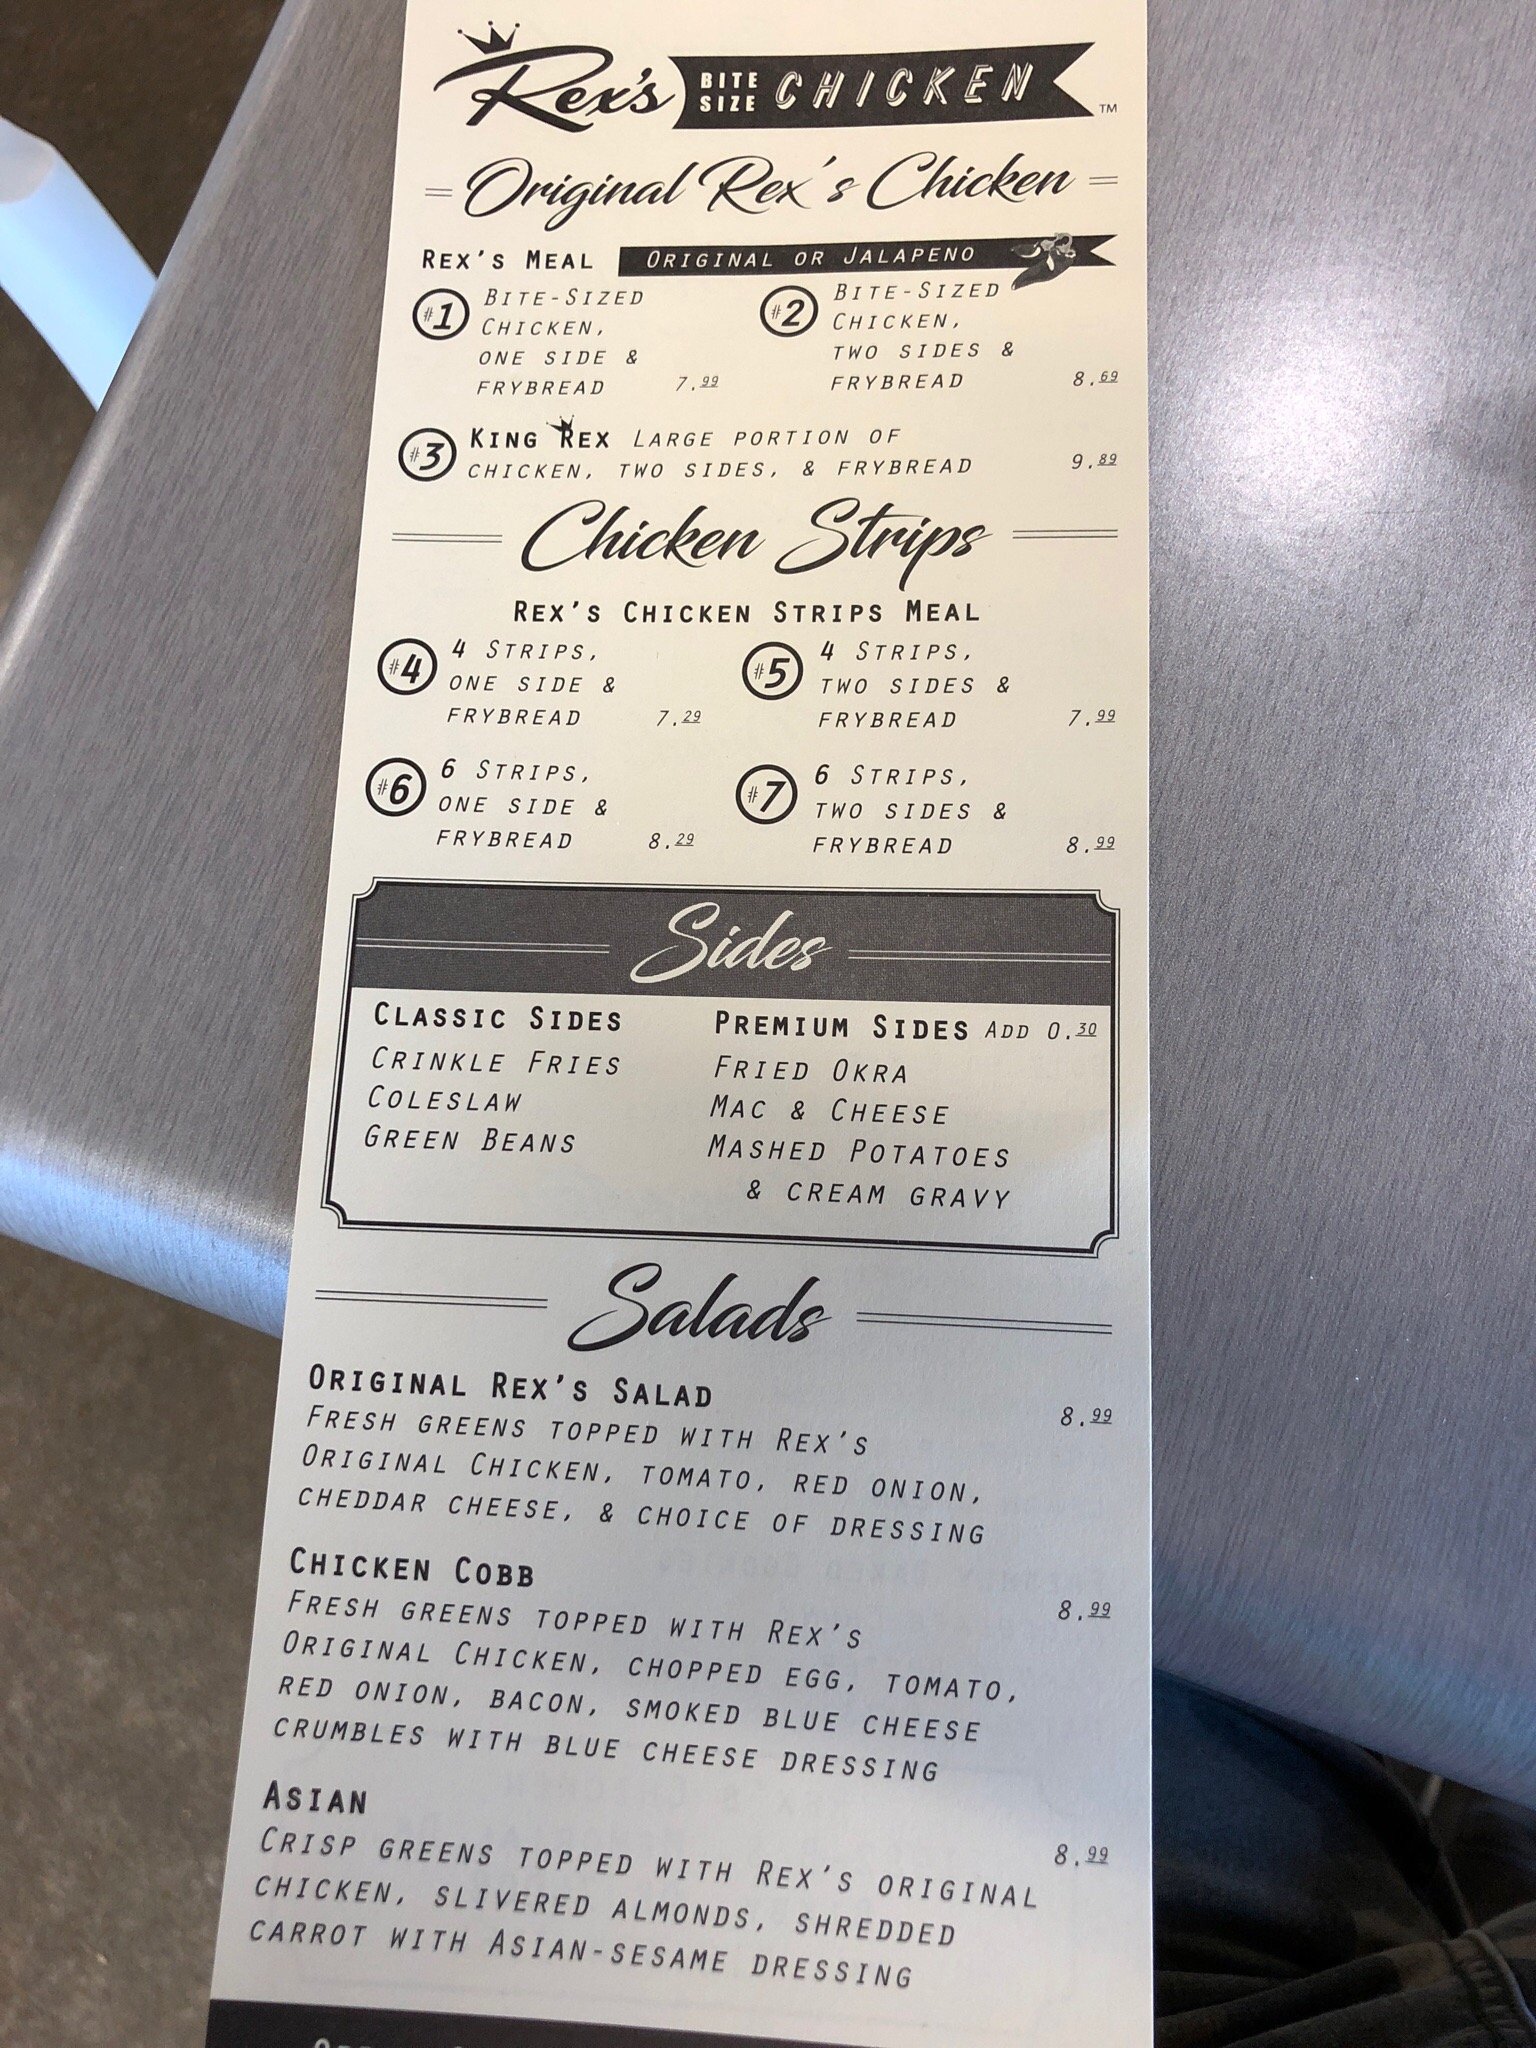 Rex's BITE SIZE CHICKEN ™
Original Rex's Chicken
REX'S MEAL ORIGINAL OR JALAPENO
#1 BITE-SIZED
CHICKEN,
ONE SIDE &
FRYBREAD 7.99
#2 BITE-SIZED
CHICKEN,
TWO SIDES &
FRYBREAD 8.69
#3 KING REX LARGE PORTION OF
CHICKEN, TWO SIDES, & FRYBREAD 9.89
Chicken Strips
REX'S CHICKEN STRIPS MEAL
#4 4 STRIPS,
ONE SIDE &
FRYBREAD 7.29
#5 4 STRIPS,
TWO SIDES &
FRYBREAD 7.99
#6 6 STRIPS,
ONE SIDE &
FRYBREAD 8.29
#7 6 STRIPS,
TWO SIDES &
FRYBREAD 8.99
Sides
CLASSIC SIDES
CRINKLE FRIES
COLESLAW
GREEN BEANS
PREMIUM SIDES ADD 0.30
FRIED OKRA
MAC & CHEESE
MASHED POTATOES
& CREAM GRAVY
Salads
ORIGINAL REX'S SALAD 8.99
FRESH GREENS TOPPED WITH REX'S
ORIGINAL CHICKEN, TOMATO, RED ONION,
CHEDDAR CHEESE, & CHOICE OF DRESSING
CHICKEN COBB 8.99
FRESH GREENS TOPPED WITH REX'S
ORIGINAL CHICKEN, CHOPPED EGG, TOMATO,
RED ONION, BACON, SMOKED BLUE CHEESE
CRUMBLES WITH BLUE CHEESE DRESSING
ASIAN 8.99
CRISP GREENS TOPPED WITH REX'S ORIGINAL
CHICKEN, SLIVERED ALMONDS, SHREDDED
CARROT WITH ASIAN-SESAME DRESSING